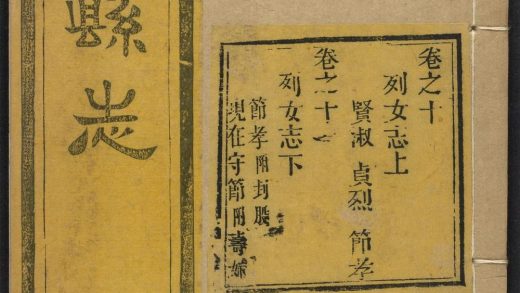 縣志
卷之十
列女志上
賢淑 貞烈 節孝
卷之十一
列女志下
節孝附封股
現在守節附壽婦